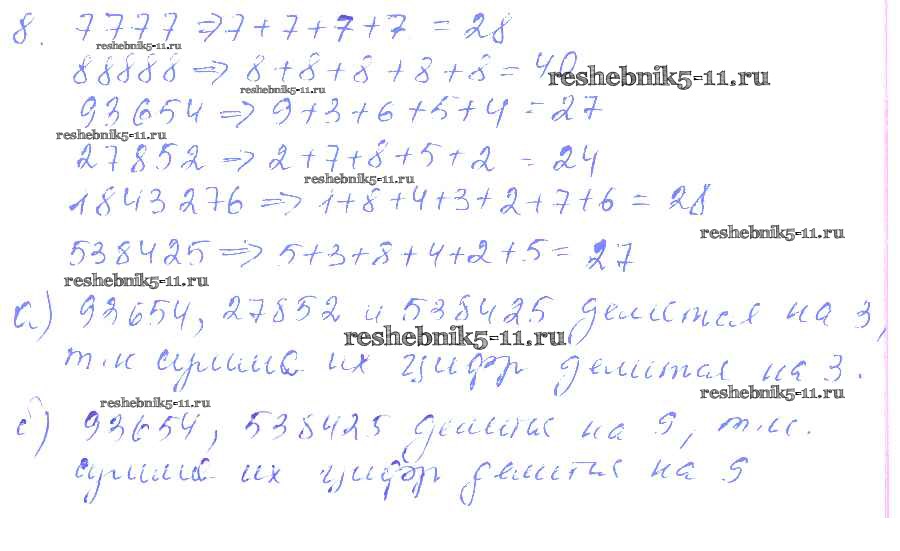 8. 7777 => 7+7+7+7 = 28
reshebnik5-11.ru
88888 => 8+8+8+8+8 = 40
reshebnik5-11.ru
reshebnik5-11.ru
93654 => 9+3+6+5+4 = 27
reshebnik5-11.ru
27852 => 2+7+8+5+2 = 24
reshebnik5-11.ru
1843276 => 1+8+4+3+2+7+6 = 28
reshebnik5-11.ru
538425 => 5+3+8+4+2+5 = 27
reshebnik5-11.ru
а) 93654, 27852 и 538425 делится на 3,
reshebnik5-11.ru
т.к сумма их цифр делится на 3.
reshebnik5-11.ru
reshebnik5-11.ru
б) 93654, 538425 делится на 9, т.к.
сумма их цифр делится на 9